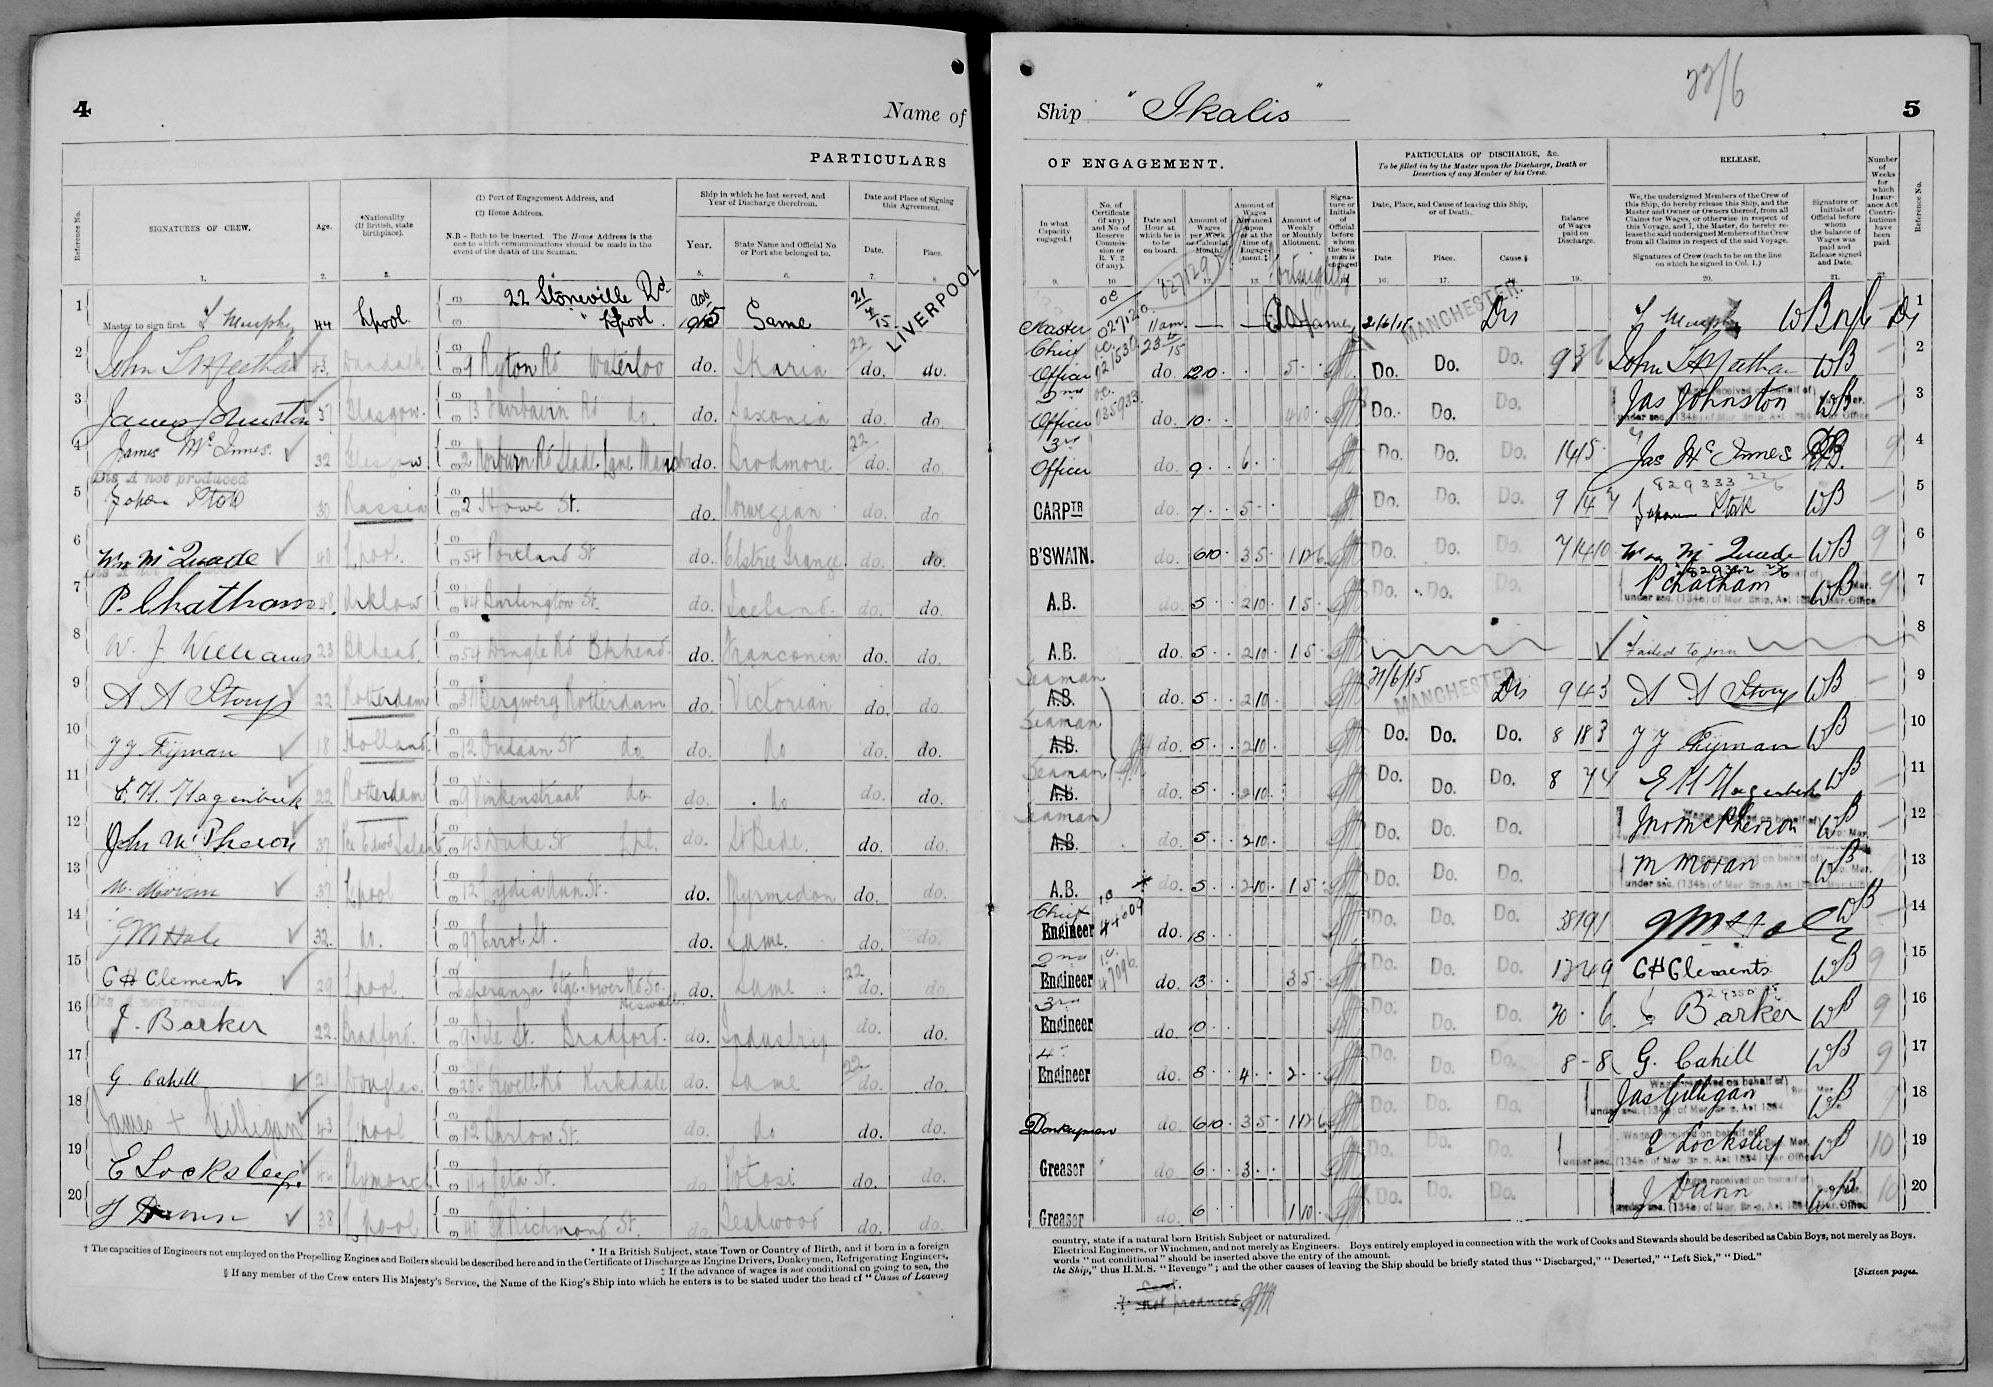 4
Name of
PARTICULARS
Reference No.
SIGNATURES OF CREW.
Age.
*Nationality (If British, state birthplace).
(1) Port of Engagement Address, and
(2) Home Address.
N.B - Both to be inserted. The Home Address is the one to which communications should be made in the event of the death of the Seaman.
Ship in which he last served, and Year of Discharge therefrom.
Year.
State Name and Official No. or Port she belonged to.
Date and Place of Signing this Agreement.
Date.
Place.
1. 2. 3. 5. 6. 7. 8
1 Master to sign first. 44 Lpool 22 Stoneville Rd Lpool. 1915 Same 21/4/15 LIVERPOOL
2 John 43 Dundalk 9 Ryton Rd Waterloo do. Ikaria 22 do. do.
3 James Johnston 37 Glasgow. 13 Fairbairn Rd do. do. Saxonia do. do.
4 James McInnes 32 Glasgow do. Brodmore 22 do. do.
Dis A not produced
5 Johan Stok 30 Russia 2 Howe St. do. Norwegian do. do
6 Wm McQuade 40 Lpool. 54 Portland St do. Elstree Grange do. do.
7 P. Chatham 48 Arklow 64 Burlington St. do. Iceland. do. do.
8 W. J. Williams 23 Bkhead. 54 Dingle Rd Bkhead. do. Franconia do. do.
9 A A Storys 22 Rotterdam Bergweg Rotterdam do. Victorian do. do.
10 JJ Fijman 18 Holland. 12 do do. do do. do.
11 E. H. Hagenbeek 22 Rotterdam 9 Vinkenstraat do do. do do. do.
12 John McPherson 37 43 Duke St Lpl. do. St Bede. do. do.
13 M. Moran 37 Lpool 12 Lydia Ann St. do. Myrmidon do. do.
14 32. do. 97 Errol St. do. Same. do. do.
15 C H Clements 29 Lpool. Esperanza Ctge Tower Rd So. Heswall. do. Same 22 do. do.
Dis A not produced
16 J. Barker 22. Bradford. St. Bradford. do. Industry do. do.
17 G Cahill 21 Douglas. Kirkdale do. Same 22 do. do.
18 James + Gilligan 43 Lpool 12 Barlow St. do. do do. do.
19 E Locksley. Plymouth St. do. Potosi do. do.
20 J Dunn 38 Lpool 40 Richmond St. do. Teakwood do. do.
† The capacities of Engineers not employed on the Propelling Engines and Boilers should be described here and in the Certificate of Discharge as Engine Drivers, Donkeymen, Refrigerating Engineers,
* If a British Subject, state Town or Country of Birth, and if born in a foreign
‡ If the advance of wages is not conditional on going to sea, the
§ If any member of the Crew enters His Majesty's Service, the Name of the King's Ship into which he enters is to be stated under the head of "Cause of Leaving
22/6
Ship "Ikalis"
5
OF ENGAGEMENT.
PARTICULARS OF DISCHARGE, &c.
To be filled in by the Master upon the Discharge, Death or Desertion of any Member of his Crew.
RELEASE.
Number of Weeks for which Insurance Act Contributions have been paid.
Reference No.
In what Capacity engaged.†
No. of Certificate (if any) and No. of Reserve Commission or R. V. 2 (if any).
Date and Hour at which he is to be on board.
Amount of Wages per Week or Calendar Month.
Amount of Wages Advanced upon or at the time of Engagement.‡
Amount of Weekly or Monthly Allotment.
Signature or Initials of Official before whom the Seaman is engaged
Date, Place, and Cause of leaving this Ship, or of Death.
Date. Place. Cause.§
Balance of Wages paid on Discharge.
We, the undersigned Members of the Crew of this Ship, do hereby release this Ship, and the Master and Owner or Owners thereof, from all Claims for Wages, or otherwise in respect of this Voyage, and I, the Master, do hereby release the said undersigned Members of the Crew from all Claims in respect of the said Voyage.
Signatures of Crew (each to be on the line on which he signed in Col. 1.)
Signature or Initials of Official before whom the balance of Wages was paid and Release signed and Date.
9. 10 16. 17. 19. 20. 21.
Master 11 am 21/6/15 MANCHESTER. Dis 1
Chief Officer 23 4/15 do. Do. Do. Do. WB 2
2nd Officer 035933 do. 10 Do. Do. Do. Jas Johnston WB 3
3rd Officer do. 9 6 Do. Do. Do. 1415 Jas McInnes 9 4
829333 22/6
CARPTR do. 7 5 Do. Do. Do. 9 14 7 Johan Stok WB 5
B'SWAIN. do. 6 10 3 5 1 12 6 Do. Do. Do. 7 14 10 Wm McQuade WB 9 6
A.B. do. 5 2 10 1 5 Do. Do. Do. P Chatham WB 9 7
A.B. do. 5 2 10 1 5 Failed to join 8
Seaman A.B. do. 5 2 10 21/6/15 MANCHESTER Dis 9 4 3 A A Storys WB 9
Seaman A.B. do. 5 2 10 Do. Do. Do. 8 18 3 JJ Fijman WB 10
Seaman A.B. do. 5 2 10 Do. Do. Do. 8 7 4 E H Hagenbeek WB 11
Seaman A.B. do. 5 2 10 Do. Do. Do. Jno McPherson WB 12
A.B. do. 5 2 10 1 5 Do. Do. Do. M Moran WB 13
Chief Engineer 44609 do. 18 Do. Do. Do. 38 19 1 WB 14
2nd Engineer 47096 do. 13 3 5 Do. Do. Do. 12 4 9 C H Clements WB 9 15
3rd Engineer do. 10 Do. Do. Do. 20 6 Barker WB 9 16
4th Engineer do. 8 4 2 Do. Do. Do. 8 - 8 G. Cahill WB 9 17
Donkeyman do. 6 10 3 5 1 12 6 Do. Do. Do. Jas Gilligan WB 18
Greaser do. 6 3 Do. Do. Do. E Locksley WB 10 19
Greaser do. 6 1 10 Do. Do. Do. J Dunn WB 10 20
country, state if a natural born British Subject or naturalized.
Electrical Engineers, or Winchmen, and not merely as Engineers. Boys entirely employed in connection with the work of Cooks and Stewards should be described as Cabin Boys, not merely as Boys.
words "not conditional" should be inserted above the entry of the amount.
the Ship," thus H.M.S. "Revenge"; and the other causes of leaving the Ship should be briefly stated thus "Discharged," "Deserted," "Left Sick," "Died."
[Sixteen pages.
Cert.
not produced